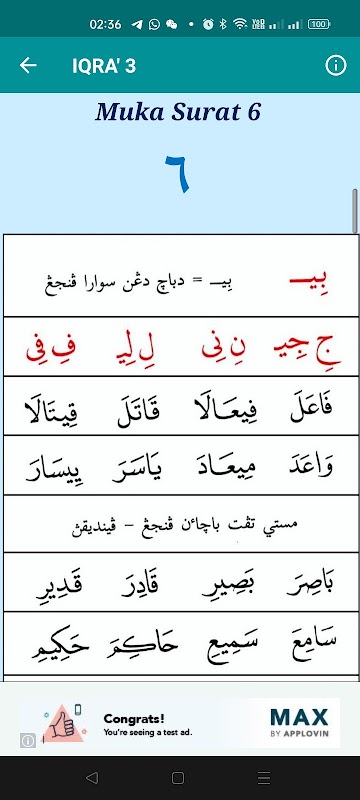 02:36
VoD LTE
100
IQRA' 3
Muka Surat 6
٦
بِيـــ بِيـــ = دباچ دڠن سوارا ڤنجڠ
جِ جِيـ نِ نِى لِ لِيـ فِ فِى
فَاعَلَ فِيعَالَا قَاتَلَ قِيتَالَا
وَاعَدَ مِيعَادَ يَاسَرَ يِيسَارَ
مستي تڤت باچاءن ڤنجڠ – ڤينديقڽ
بَاصِرَ بَصِيرِ قَادِرَ قَدِيرِ
سَامِعَ سَمِيعِ حَاكِمَ حَكِيمِ
Congrats!
You're seeing a test ad.
MAX
BY APPLOVIN